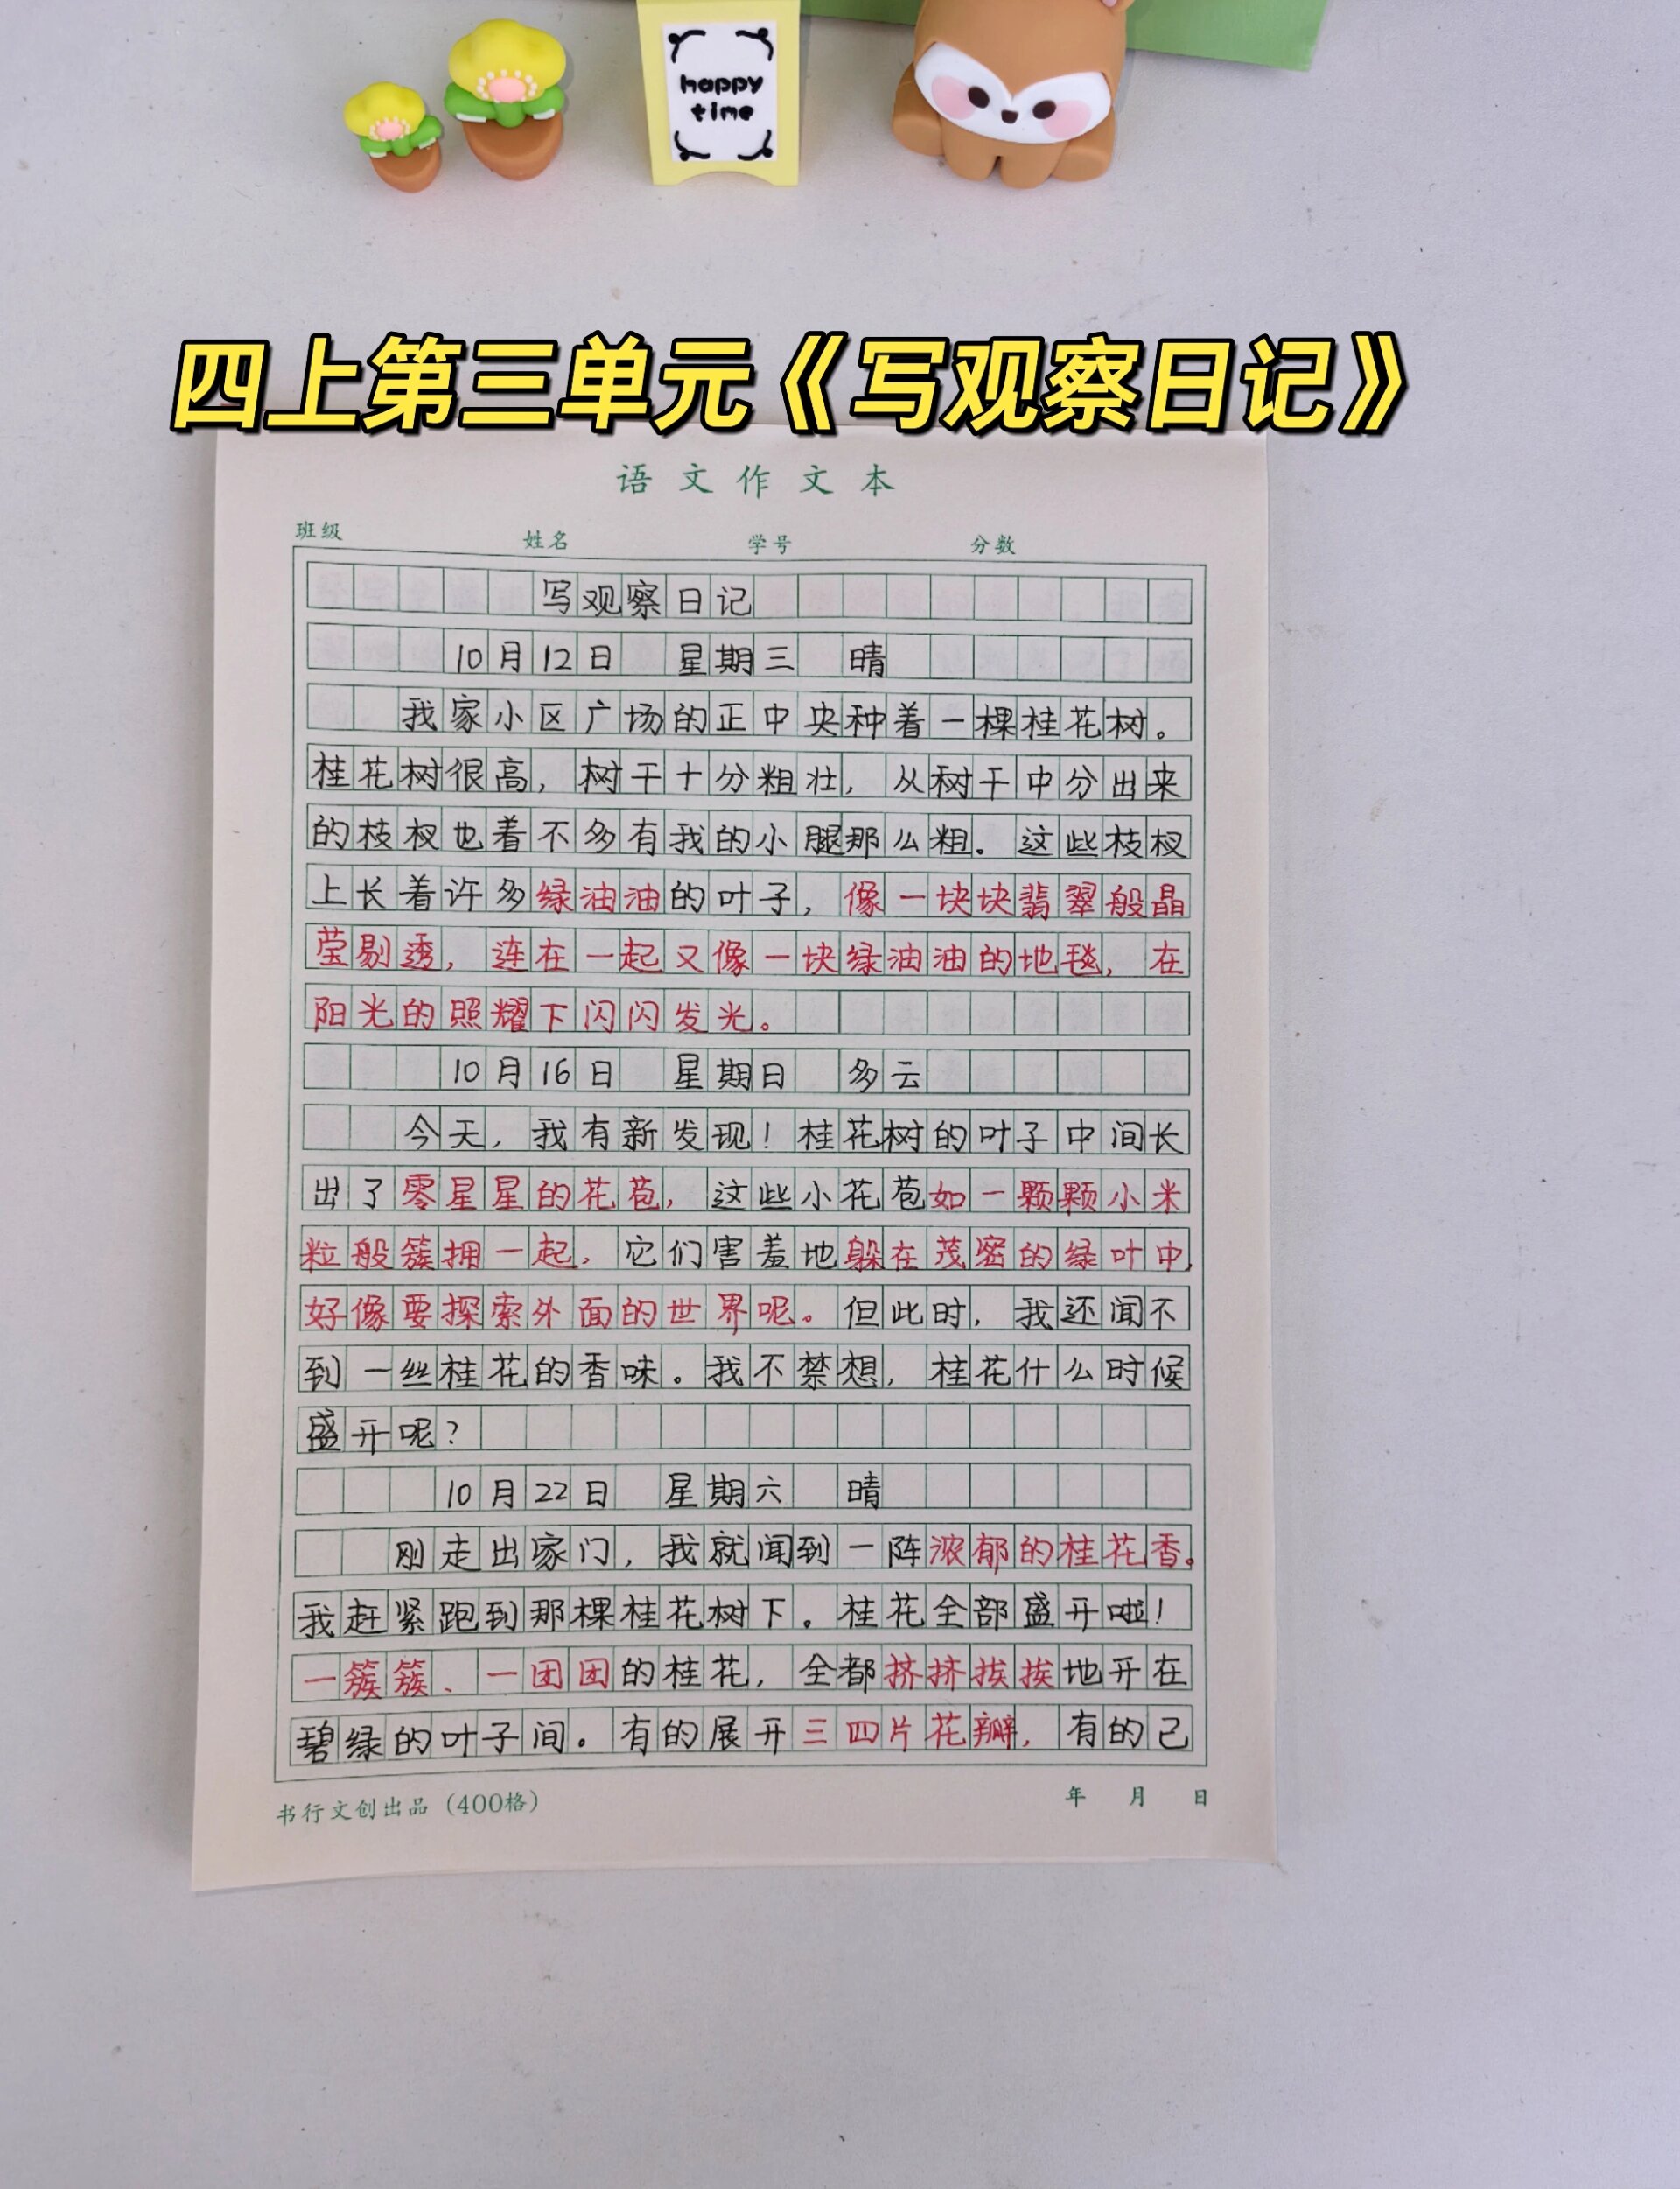 happy
time
四上第三单元《写观察日记》
语文作文本
班级 姓名 学号 分数
写观察日记
10月12日 星期三 晴
我家小区广场的正中央种着一棵桂花树。
桂花树很高，树干十分粗壮，从树干中分出来
的枝杈也着不多有我的小腿那么粗。这些枝杈
上长着许多绿油油的叶子，像一块块翡翠般晶
莹剔透，连在一起又像一块绿油油的地毯，在
阳光的照耀下闪闪发光。
10月16日 星期日 多云
今天，我有新发现！桂花树的叶子中间长
出了零星星的花苞，这些小花苞如一颗颗小米
粒般簇拥一起，它们害羞地躲在茂密的绿叶中，
好像要探索外面的世界呢。但此时，我还闻不
到一丝桂花的香味。我不禁想，桂花什么时候
盛开呢？
10月22日 星期六 晴
刚走出家门，我就闻到一阵浓郁的桂花香。
我赶紧跑到那棵桂花树下。桂花全部盛开啦！
一簇簇、一团团的桂花，全都挤挤挨挨地开在
碧绿的叶子间。有的展开三四片花瓣，有的已
书行文创出品（400格） 年 月 日